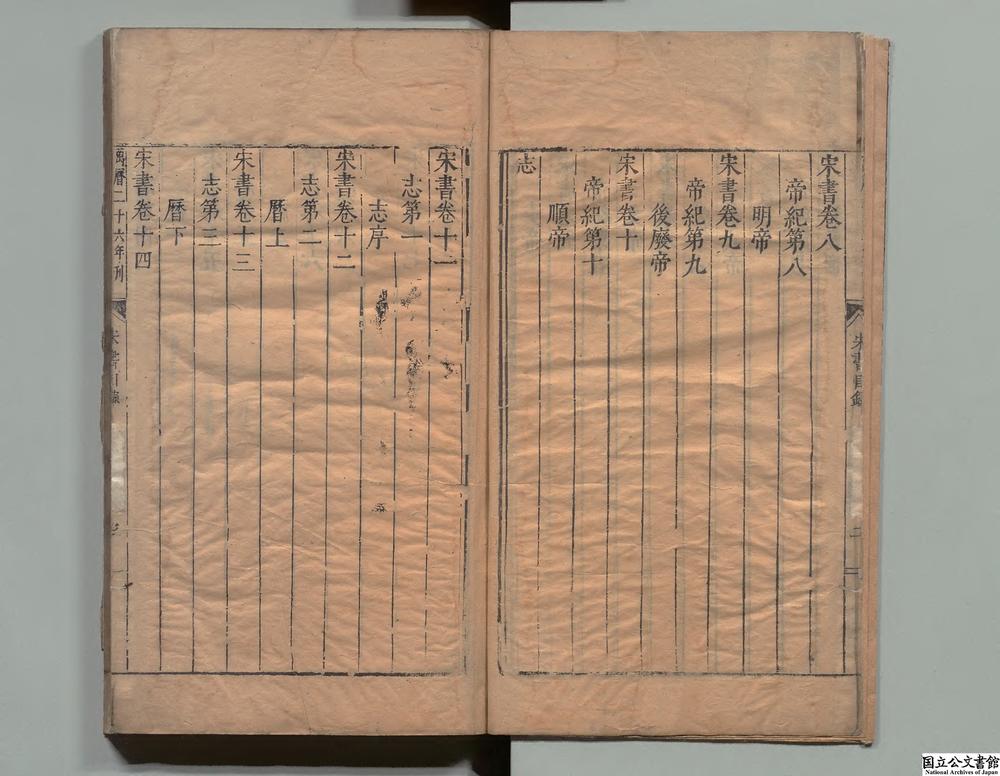 宋書目錄
宋書卷八
帝紀第八
明帝
宋書卷九
帝紀第九
後廢帝
宋書卷十
帝紀第十
順帝
志
宋書卷十一
志第一
志序
宋書卷十二
志第二
曆上
宋書卷十三
志第三
曆下
宋書卷十四
萬曆二十六年刊
宋書目錄
国立公文書館
National Archives of Japan